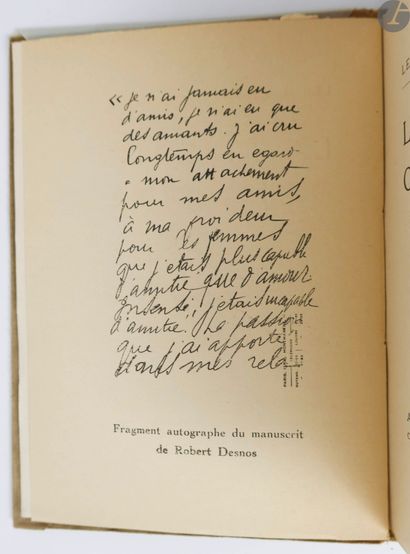 « je n'ai jamais eu
d'amis, je n'ai eu que
des amants. j'ai cru
longtemps en egard
a mon attachement
pour mes amis,
à ma froideur
pour les femmes
que j'etais plus capable
d'amitie que d'amour.
Insensé, j'etais incapable
d'amitie. La passion
que j'ai apporté
dans mes rela
Fragment autographe du manuscrit
de Robert Desnos
L